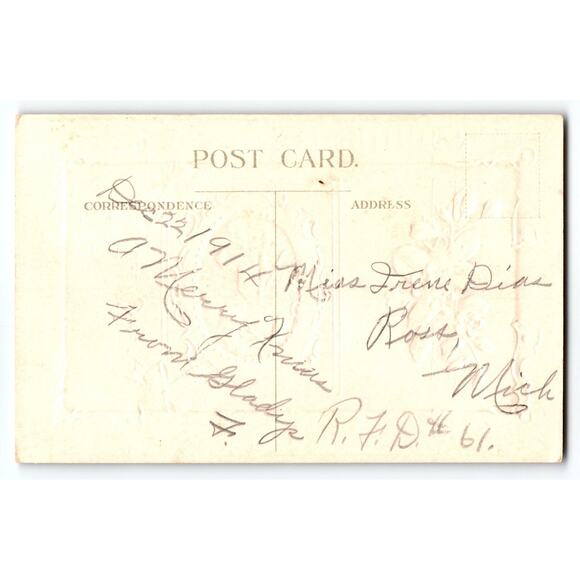 POST CARD.
CORRESPONDENCE
ADDRESS
Dec 22 1914
A Merry Xmas
From Gladys
F.
Miss Irene Dias
Ross,
Mich
R. F. D. # 61.